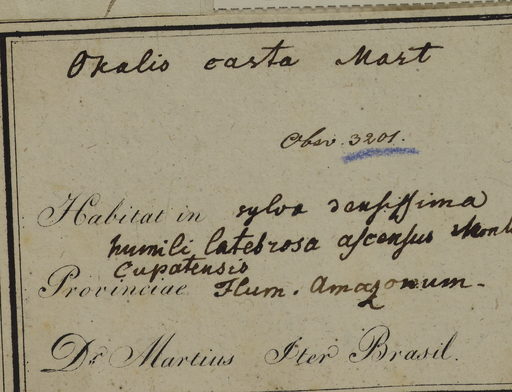 Oxalis casta Mart
Obsv. 3201.
Habitat in sylva densissima
humili latebrosa ascensus Mont
Cupatensis
Provinciae Flum. Amazonum.
Dr Martius Iter Brasil.